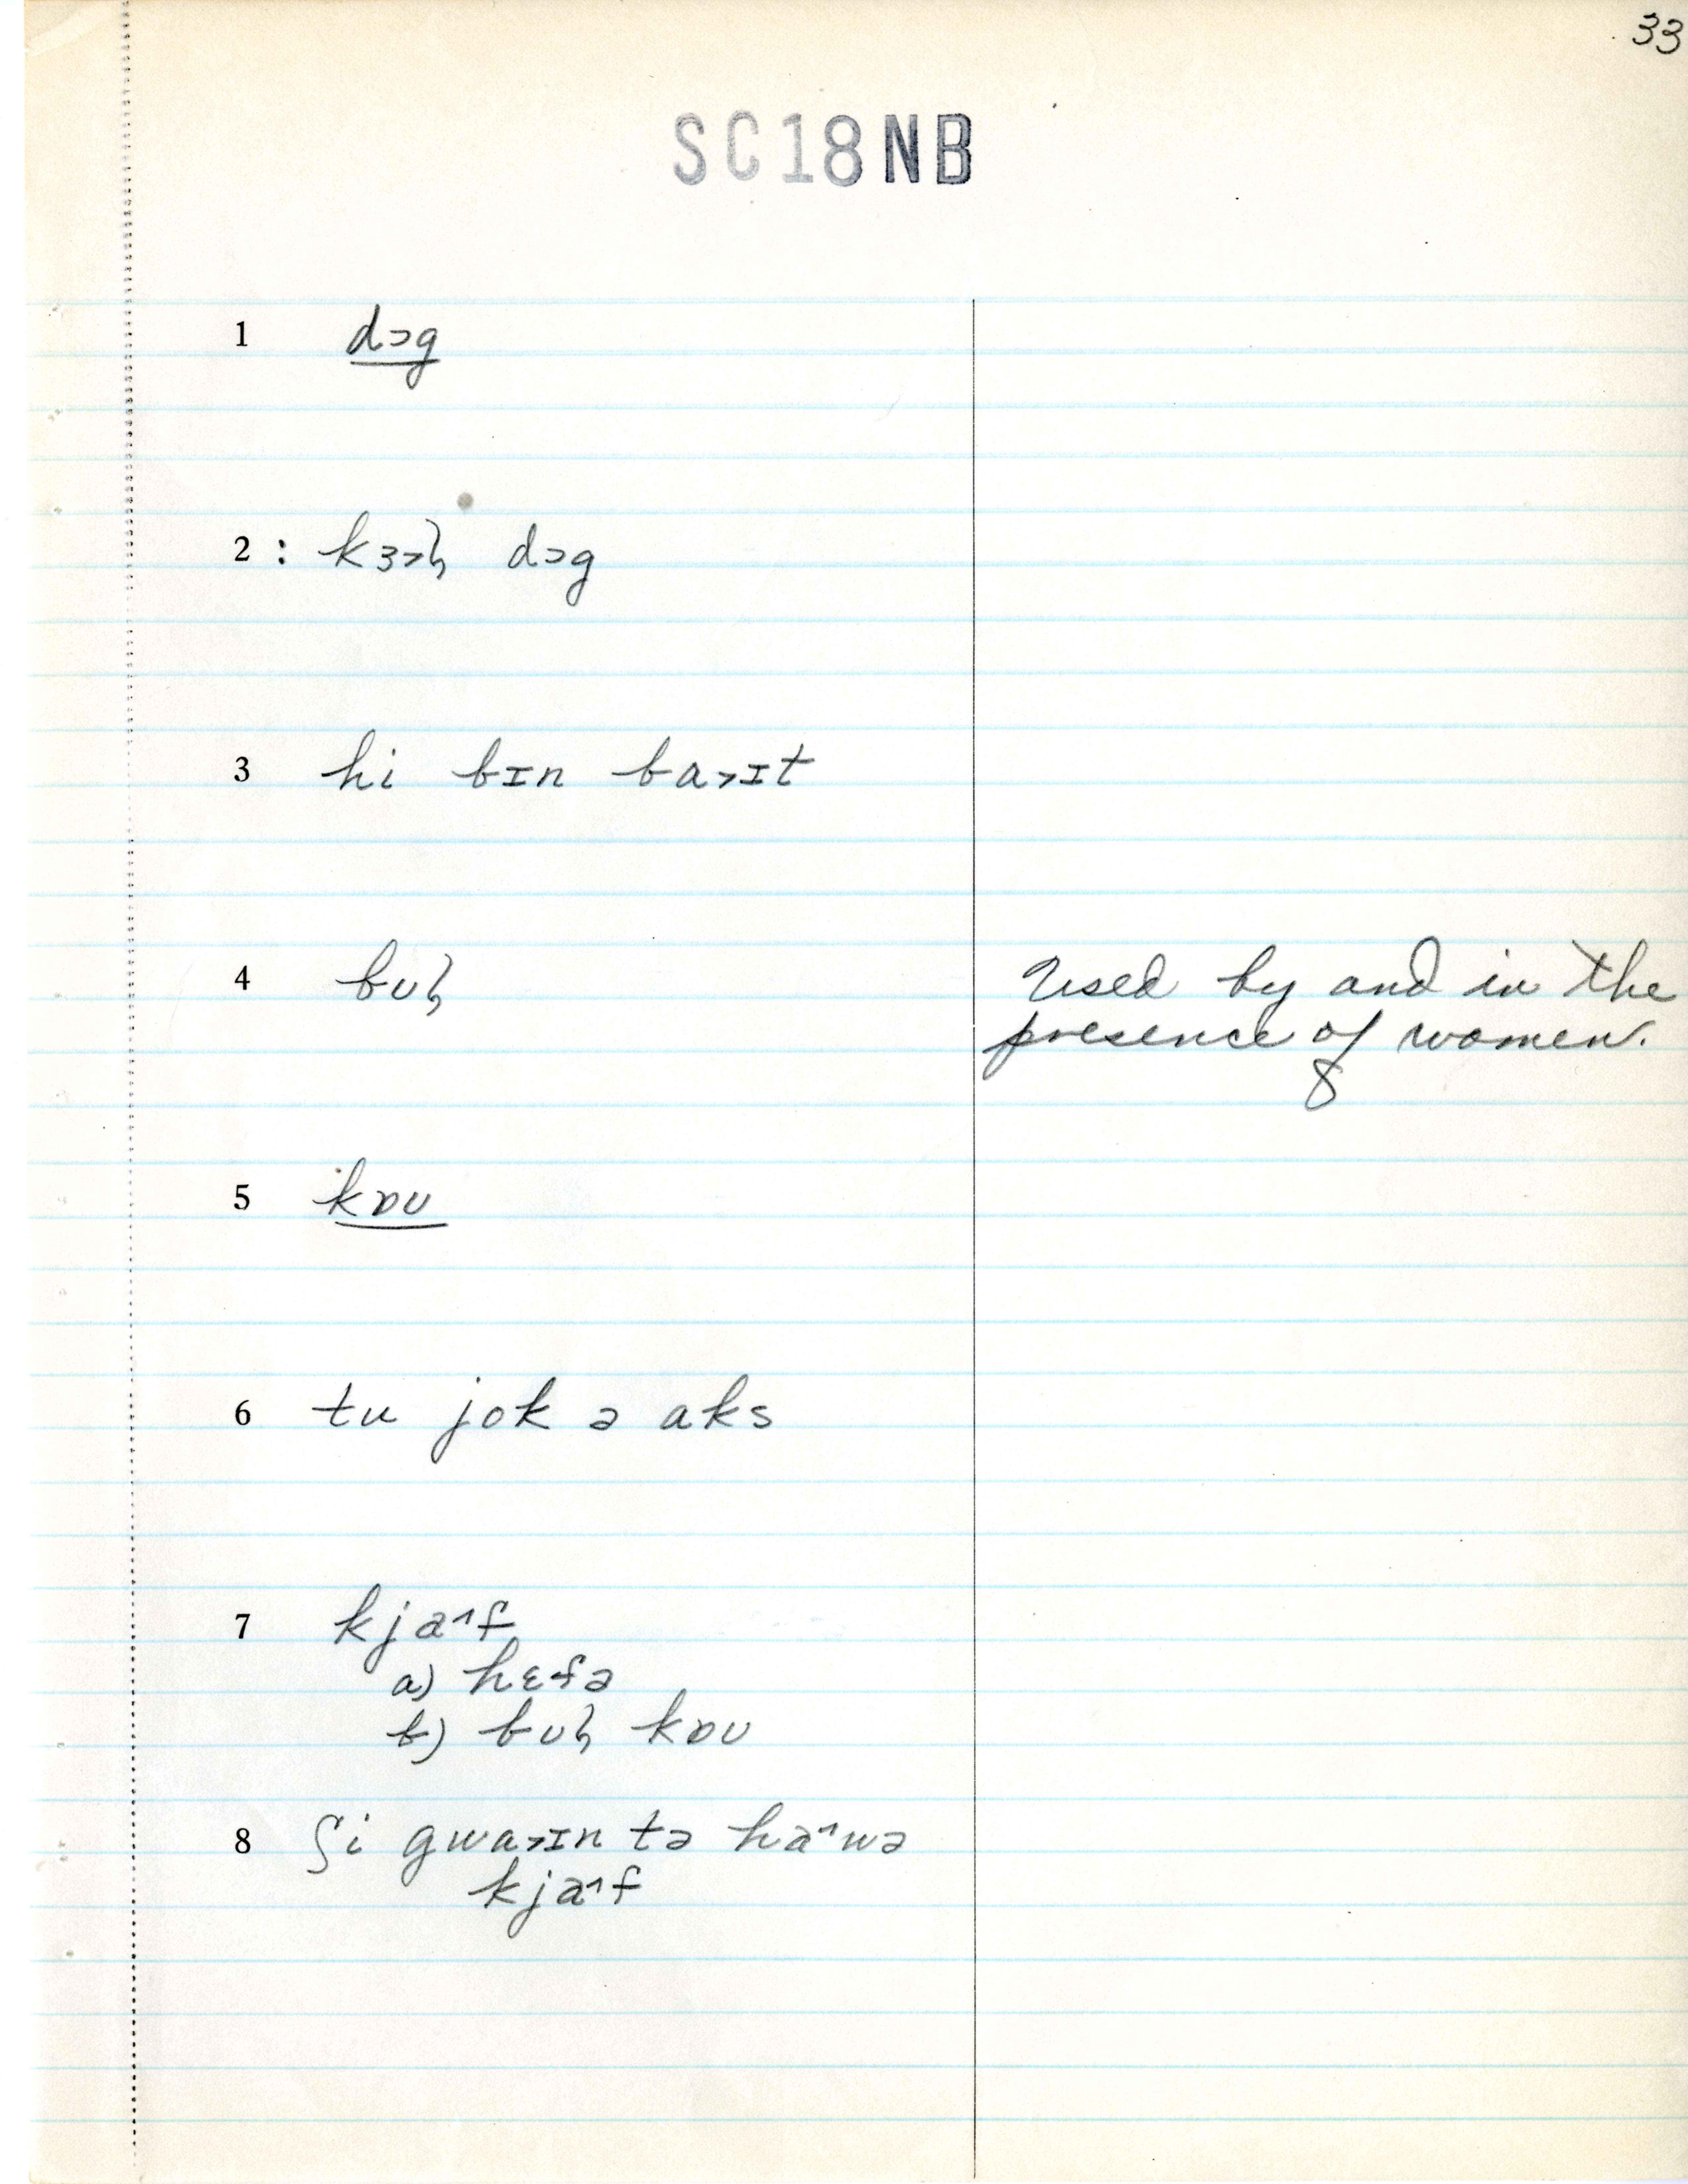 33
SC18NB
1 dɔg
2 : kɜ˃ɮ dɔg
3 hi bɪn ba˃ɪt
4 bʊɮ Used by and in the
presence of women.
8
5 kɒʊ
6 tu jok ə aks
7 kja˄f
a) hɛfə
b) bʊɮ kɒʊ
8 ʃi gwa˃ɪn tə ha˄wə
kja˄f